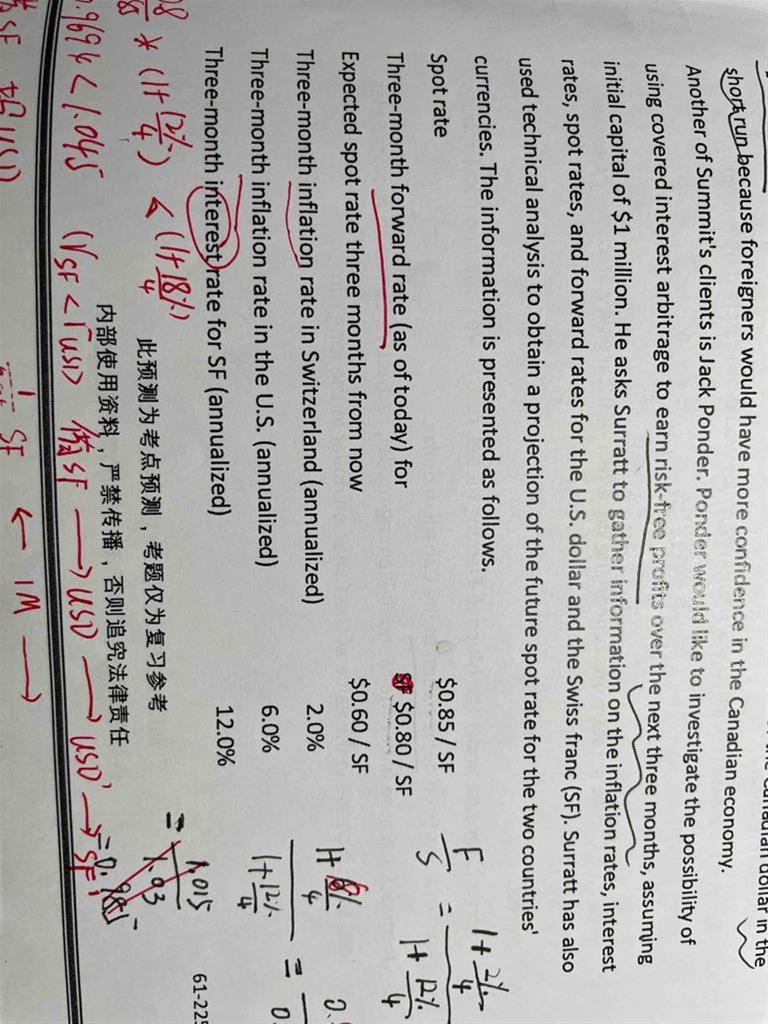 Canadian dollar in the
short run because foreigners would have more confidence in the Canadian economy.
Another of Summit's clients is Jack Ponder. Ponder would like to investigate the possibility of
using covered interest arbitrage to earn risk-free profits over the next three months, assuming
initial capital of $1 million. He asks Surratt to gather information on the inflation rates, interest
rates, spot rates, and forward rates for the U.S. dollar and the Swiss franc (SF). Surratt has also
used technical analysis to obtain a projection of the future spot rate for the two countries'
currencies. The information is presented as follows.
Spot rate $0.85 / SF
Three-month forward rate (as of today) for $0.80 / SF
Expected spot rate three months from now $0.60 / SF
Three-month inflation rate in Switzerland (annualized) 2.0%
Three-month inflation rate in the U.S. (annualized) 6.0%
Three-month interest rate for SF (annualized) 12.0%
F/S = (1+2%/4)/(1+12%/4)
(1+6%/4)/(1+12%/4) =
= 1.015/1.03 = 0.985
* (1+12%/4) < (1+18%/4)
.9694 < 1.045 (rSF < rUSD) 借SF → USD → USD' → SF'
此预测为考点预测，考题仅为复习参考
内部使用资料，严禁传播，否则追究法律责任
61-225
SF ← 1M →